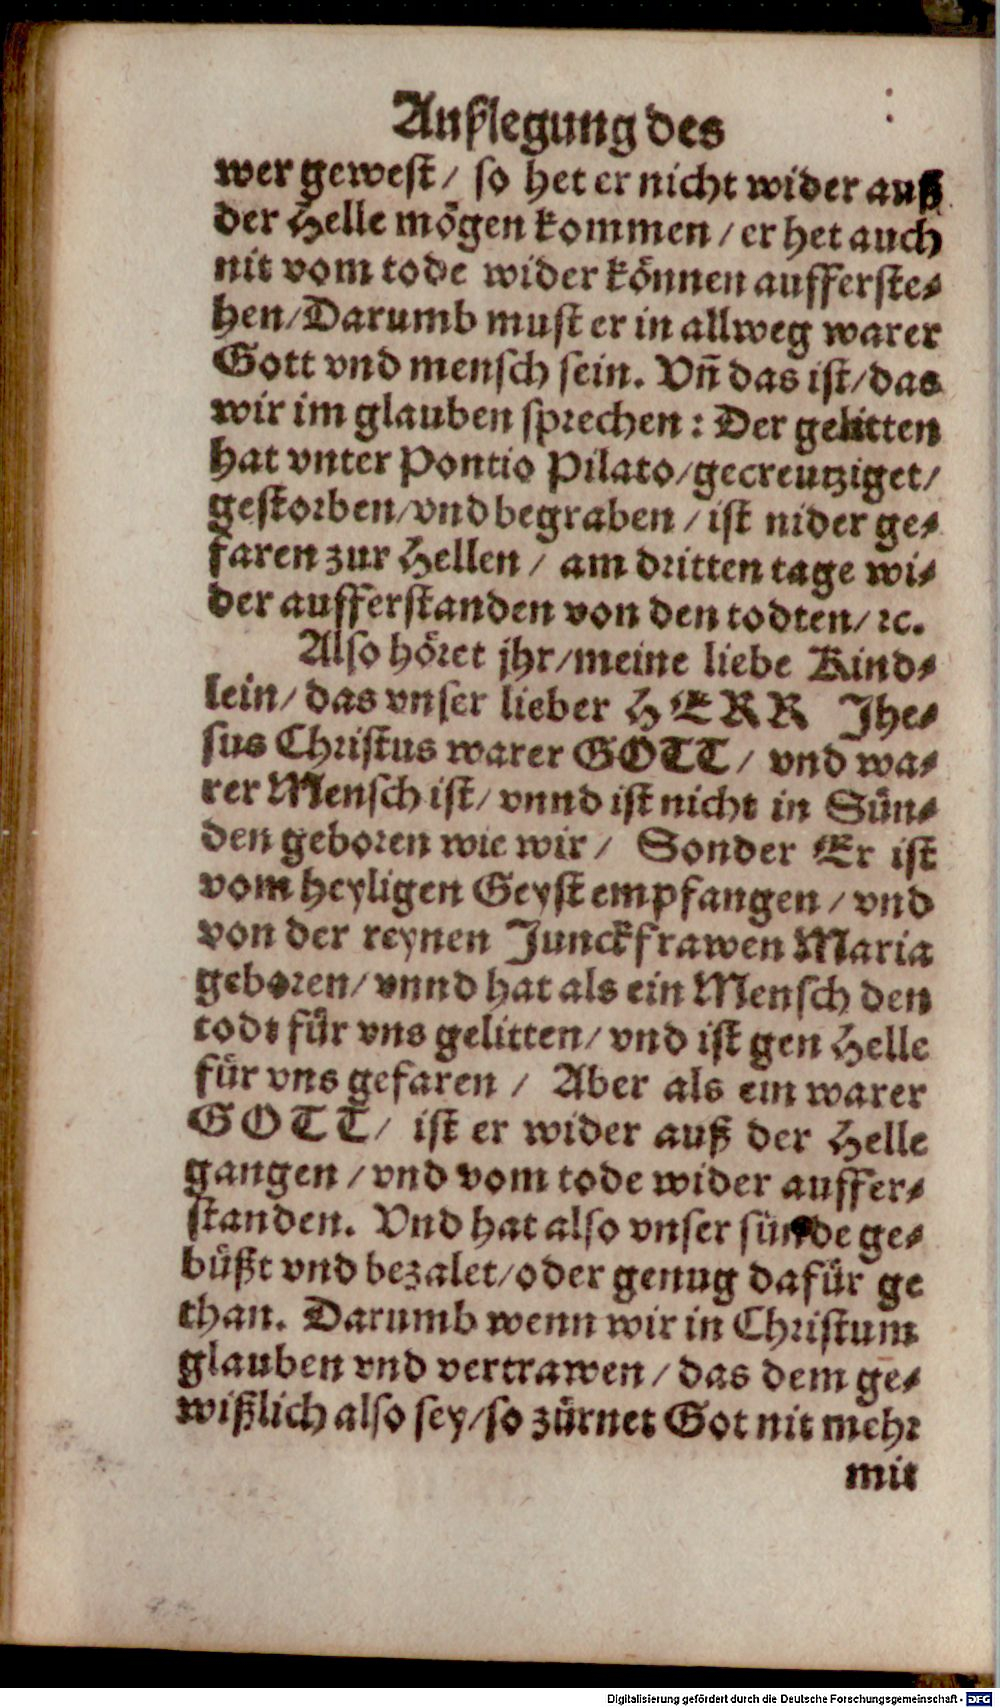 Außlegung des
wer gewest/ so het er nicht wider auß
der Helle mögen kommen/ er het auch
nit vom tode wider können aufferste⸗
hen/ Darumb must er in allweg warer
Gott vnd mensch sein. Vñ das ist/ das
wir im glauben sprechen: Der gelitten
hat vnter Pontio Pilato/ gecreutziget/
gestorben/ vnd begraben/ ist nider ge⸗
faren zur Hellen/ am dritten tage wi⸗
der aufferstanden von den todten/ ꝛc.
Also höret jhr/ meine liebe Kind⸗
lein/ das vnser lieber HERR Jhe⸗
sus Christus warer GOTT/ vnd wa⸗
rer Mensch ist/ vnnd ist nicht in Sün⸗
den geboren wie wir/ Sonder Er ist
vom heyligen Geyst empfangen/ vnd
von der reynen Junckfrawen Maria
geboren/ vnnd hat als ein Mensch den
todt für vns gelitten/ vnd ist gen Helle
für vns gefaren/ Aber als ein warer
GOTT/ ist er wider auß der Helle
gangen/ vnd vom tode wider auffer⸗
standen. Vnd hat also vnser sünde ge⸗
büßt vnd bezalet/ oder genug dafür ge
than. Darumb wenn wir in Christum
glauben vnd vertrawen/ das dem ge⸗
wißlich also sey/ so zürnet Got nit mehr
mit
Digitalisierung gefördert durch die Deutsche Forschungsgemeinschaft - DFG